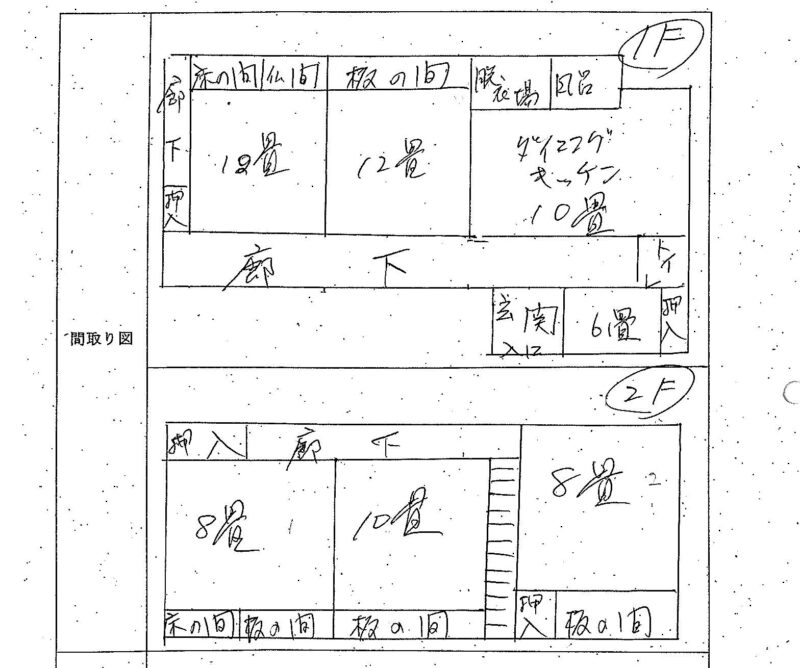 間取り図
1F
床の間 仏間 板の間 脱衣場 風呂
廊下
押入
12畳 12畳
ダイニング
キッチン
10畳
廊下
トイレ
玄関
入口
6畳
押入
2F
押入 廊下
8畳 10畳 8畳
床の間 板の間 板の間
押入 板の間